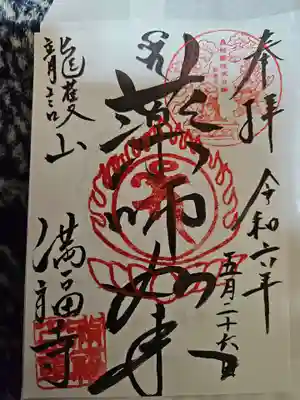 奉拝
令和六年
五月二十六日
薬師如来
龍護山
満福寺